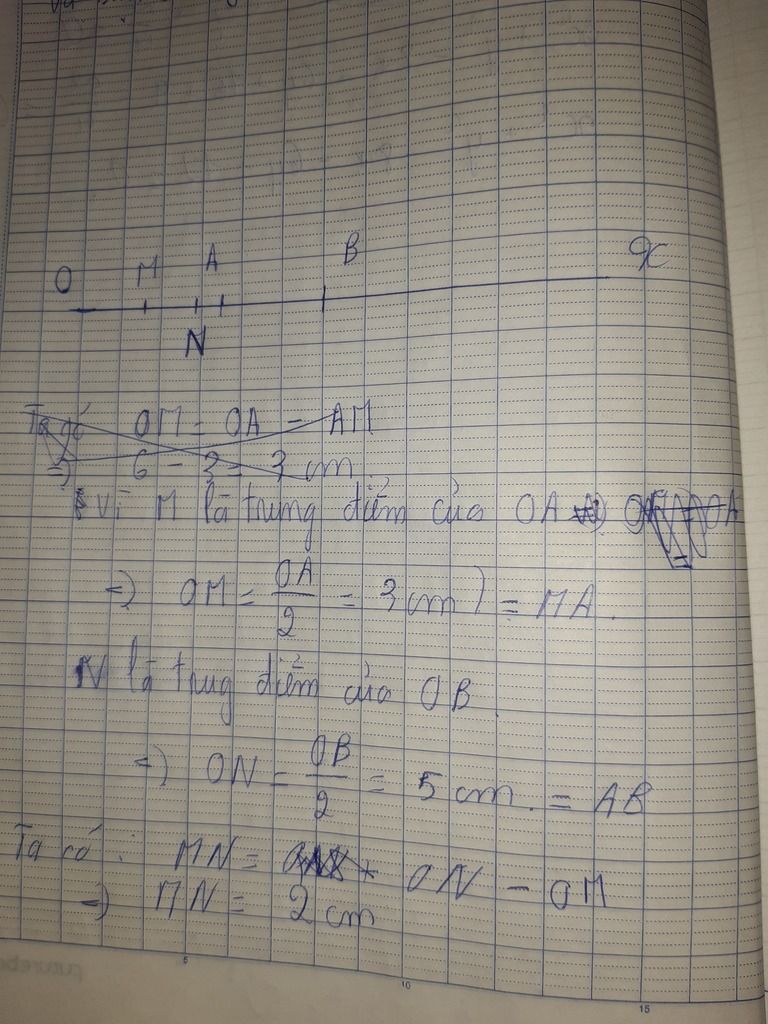 O M A B x
N
Ta có OM = OA - AM
=) 6 - 3 = 3 cm
Vì M là trung điểm của OA
=) OM = OA/2 = 3 cm = MA.
N là trug điểm của OB
=) ON = OB/2 = 5 cm. = AB
Ta có: MN = ON - OM
=) MN = 2 cm
5 10 15